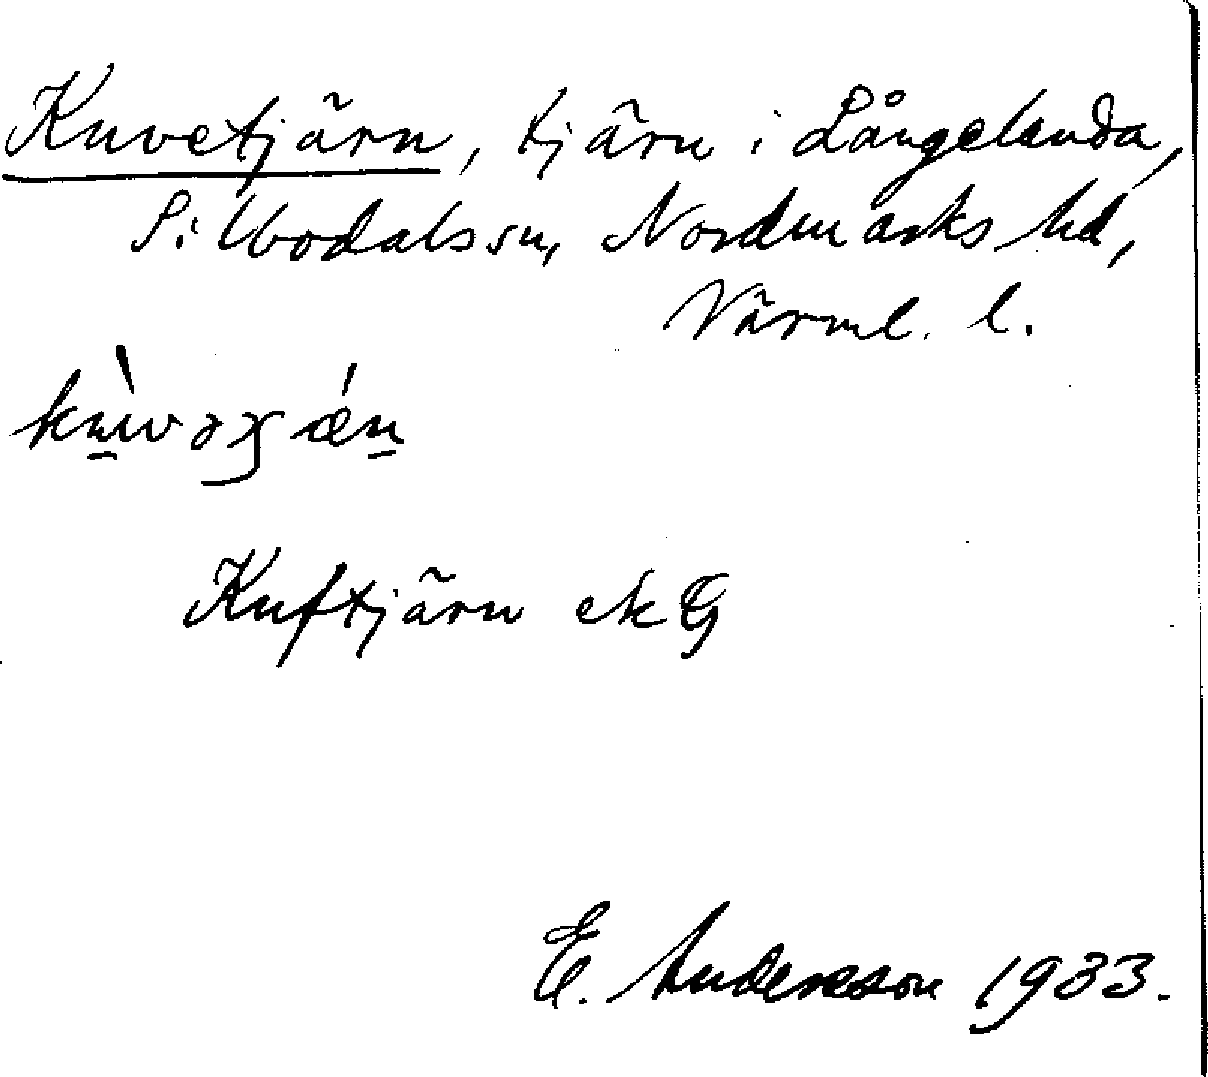 Kuvetjärn, tjärn i Långelanda,
Silbodals sn, Nordmarks hd,
Värml. l.
Kuftjärn ekG
E. Andersson 1933.